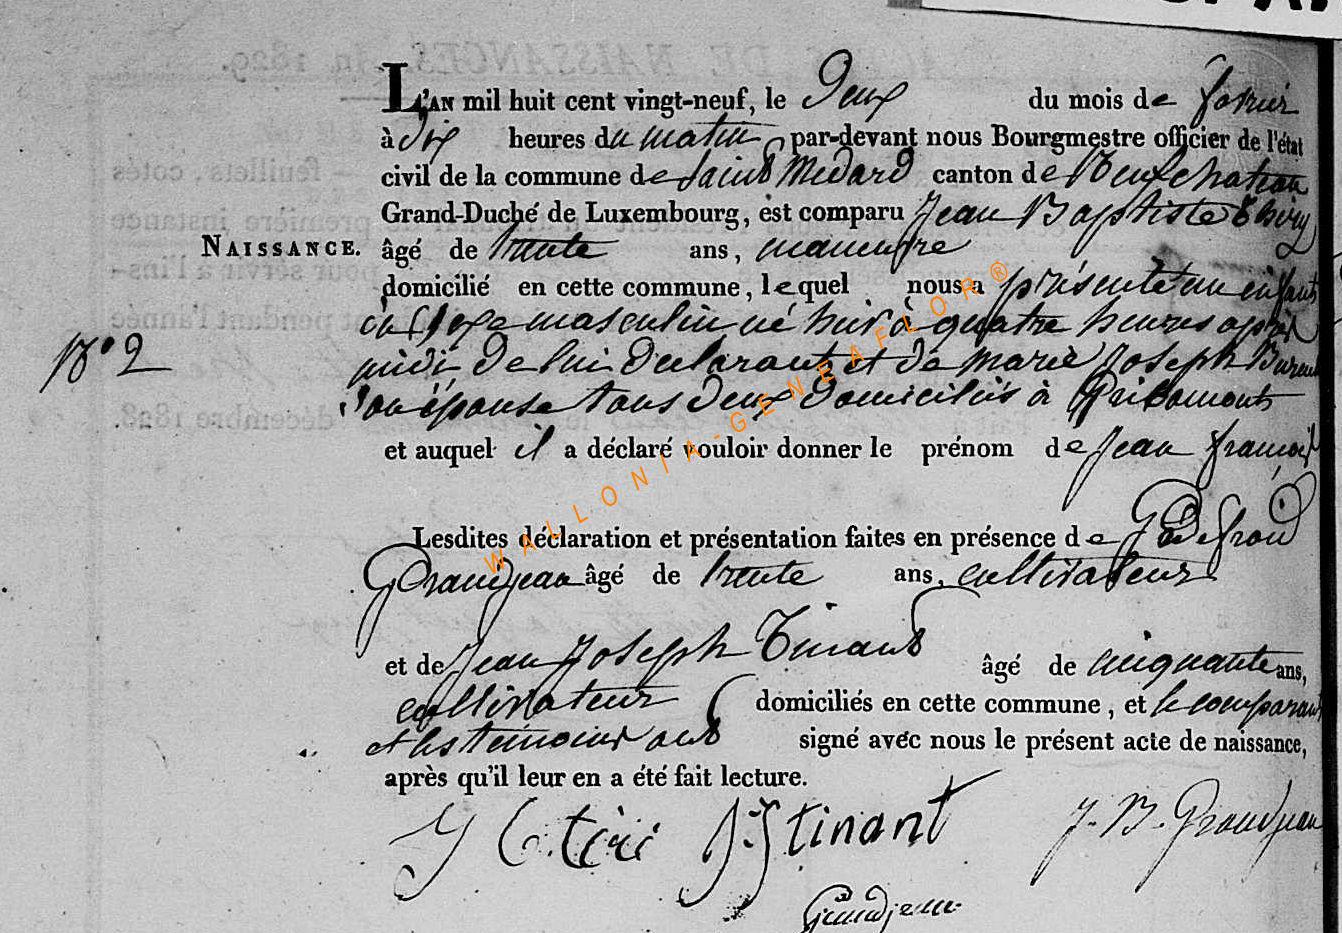 L'AN mil huit cent vingt-neuf, le Deux du mois de fevrier
à dix heures du matin par-devant nous Bourgmestre officier de l'état
civil de la commune de Saint Medard canton de Neufchateau
Grand-Duché de Luxembourg, est comparu Jean Baptiste Thiry
NAISSANCE. âgé de trente ans, maneuvre
domicilié en cette commune, lequel nous a présenté un enfant
du sexe masculin né hier à quatre heures après
N° 2 midi de lui declarant et de marie Joseph
son épouse tous deux domiciliés à Gribomont
et auquel il a déclaré vouloir donner le prénom de Jean françois
Lesdites déclaration et présentation faites en présence de Godefroid
Grandjean âgé de trente ans, cultivateur
et de Jean Joseph Tinant âgé de cinquante ans,
cultivateur domiciliés en cette commune, et le comparant
et les temoins ont signé avec nous le présent acte de naissance,
après qu'il leur en a été fait lecture.
J Tinant J. B. Grandjean
Grandjean
WALLONIA-GENEAFLOR®